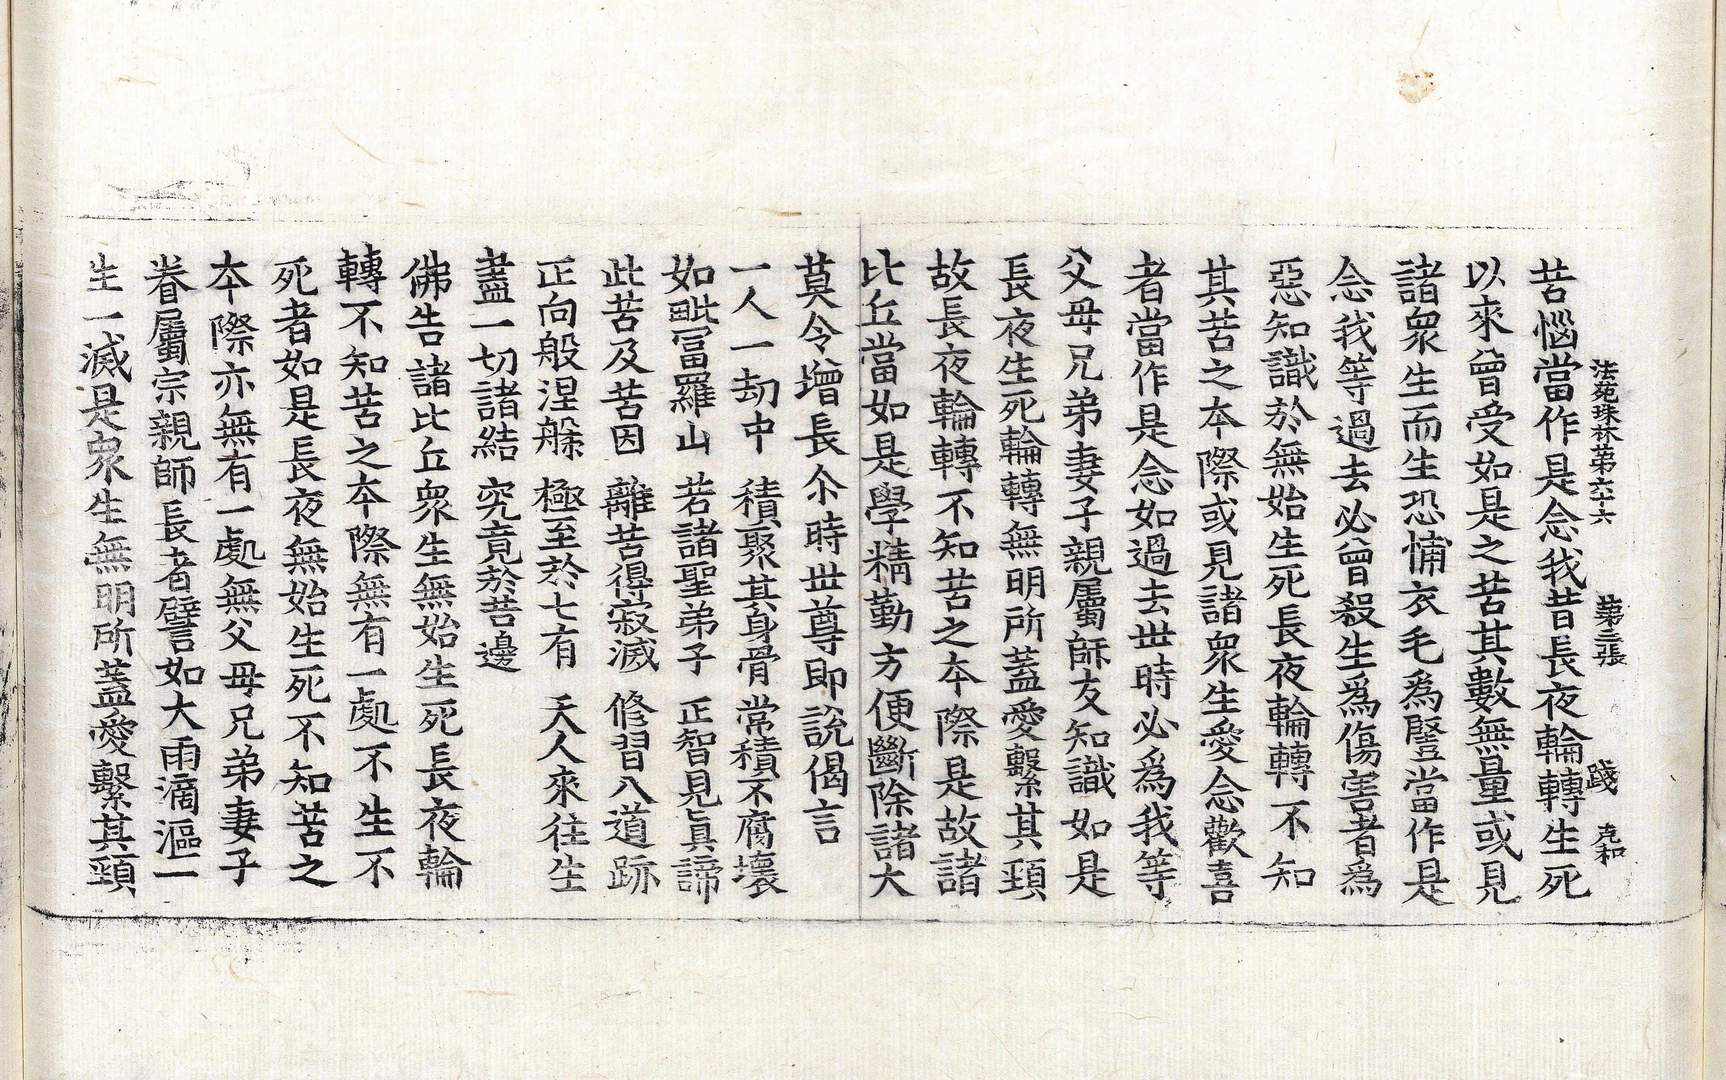 法苑珠林第六十六　第三張　踐　克和
苦惱當作是念我昔長夜輪轉生死
以來曾受如是之苦其數無量或見
諸衆生而生恐怖衣毛爲豎當作是
念我等過去必曾殺生爲傷害者爲
惡知識於無始生死長夜輪轉不知
其苦之本際或見諸衆生愛念歡喜
者當作是念如過去世時必爲我等
父母兄弟妻子親屬師友知識如是
長夜生死輪轉無明所蓋愛繫其頸
故長夜輪轉不知苦之本際是故諸
比丘當如是學精勤方便斷除諸大
莫令增長尒時世尊即說偈言
一人一劫中　積聚其身骨　常積不腐壞
如毗冨羅山　若諸聖弟子　正智見眞諦
此苦及苦因　離苦得寂滅　修習八道跡
正向般涅槃　極至於七有　天人來往生
盡一切諸結　究竟於苦邊
佛告諸比丘衆生無始生死長夜輪
轉不知苦之本際無有一處不生不
死者如是長夜無始生死不知苦之
本際亦無有一處無父母兄弟妻子
眷屬宗親師長者譬如大雨滴漚一
生一滅是衆生無明所蓋愛繫其頸